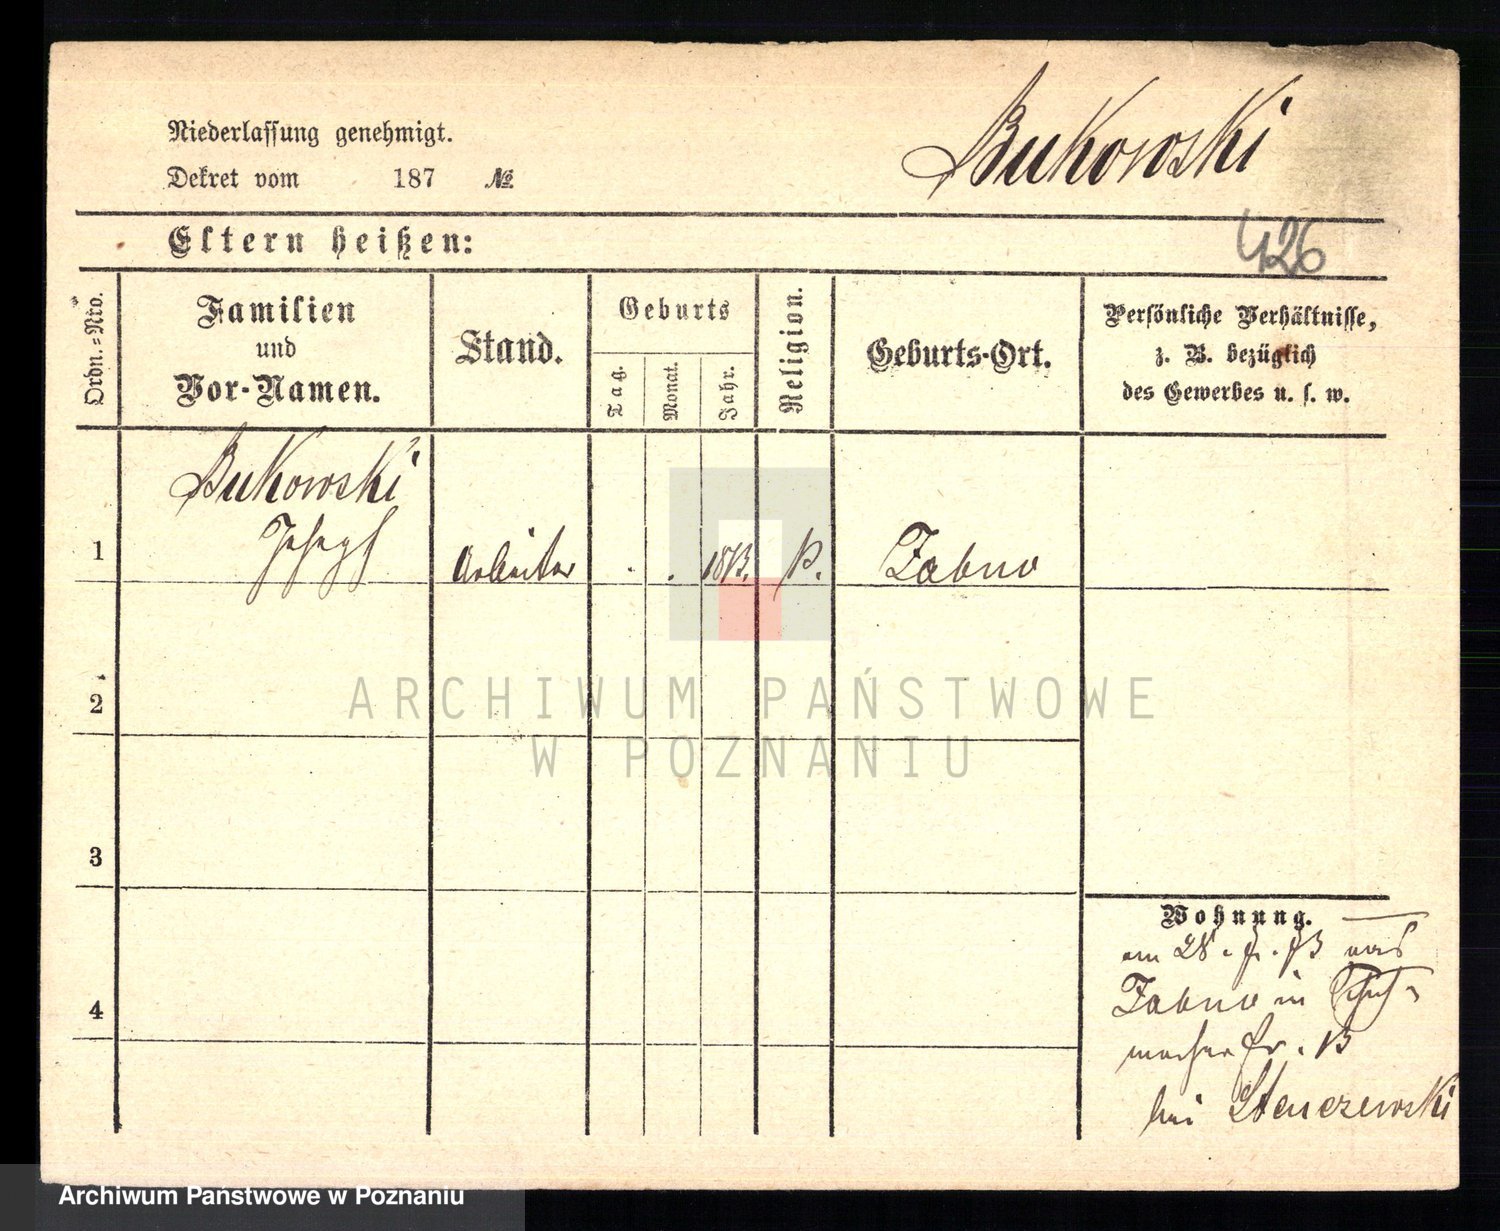 Bukowski
Niederlassung genehmigt.
Dekret vom 187 №
426
Eltern heißen:
Ordn.-Nro.
Familien und Vor-Namen.
Stand.
Geburts
Tag.
Monat.
Jahr.
Religion.
Geburts-Ort.
Persönliche Verhältnisse,
z. B. bezüglich
des Gewerbes u. s. w.
Bukowski
Joseph
1
Arbeiter
Zabno
2
3
4
Wohnung.
am 28.
Zabno in
bei Stenczewski
ARCHIWUM PAŃSTWOWE
W POZNANIU
Archiwum Państwowe w Poznaniu